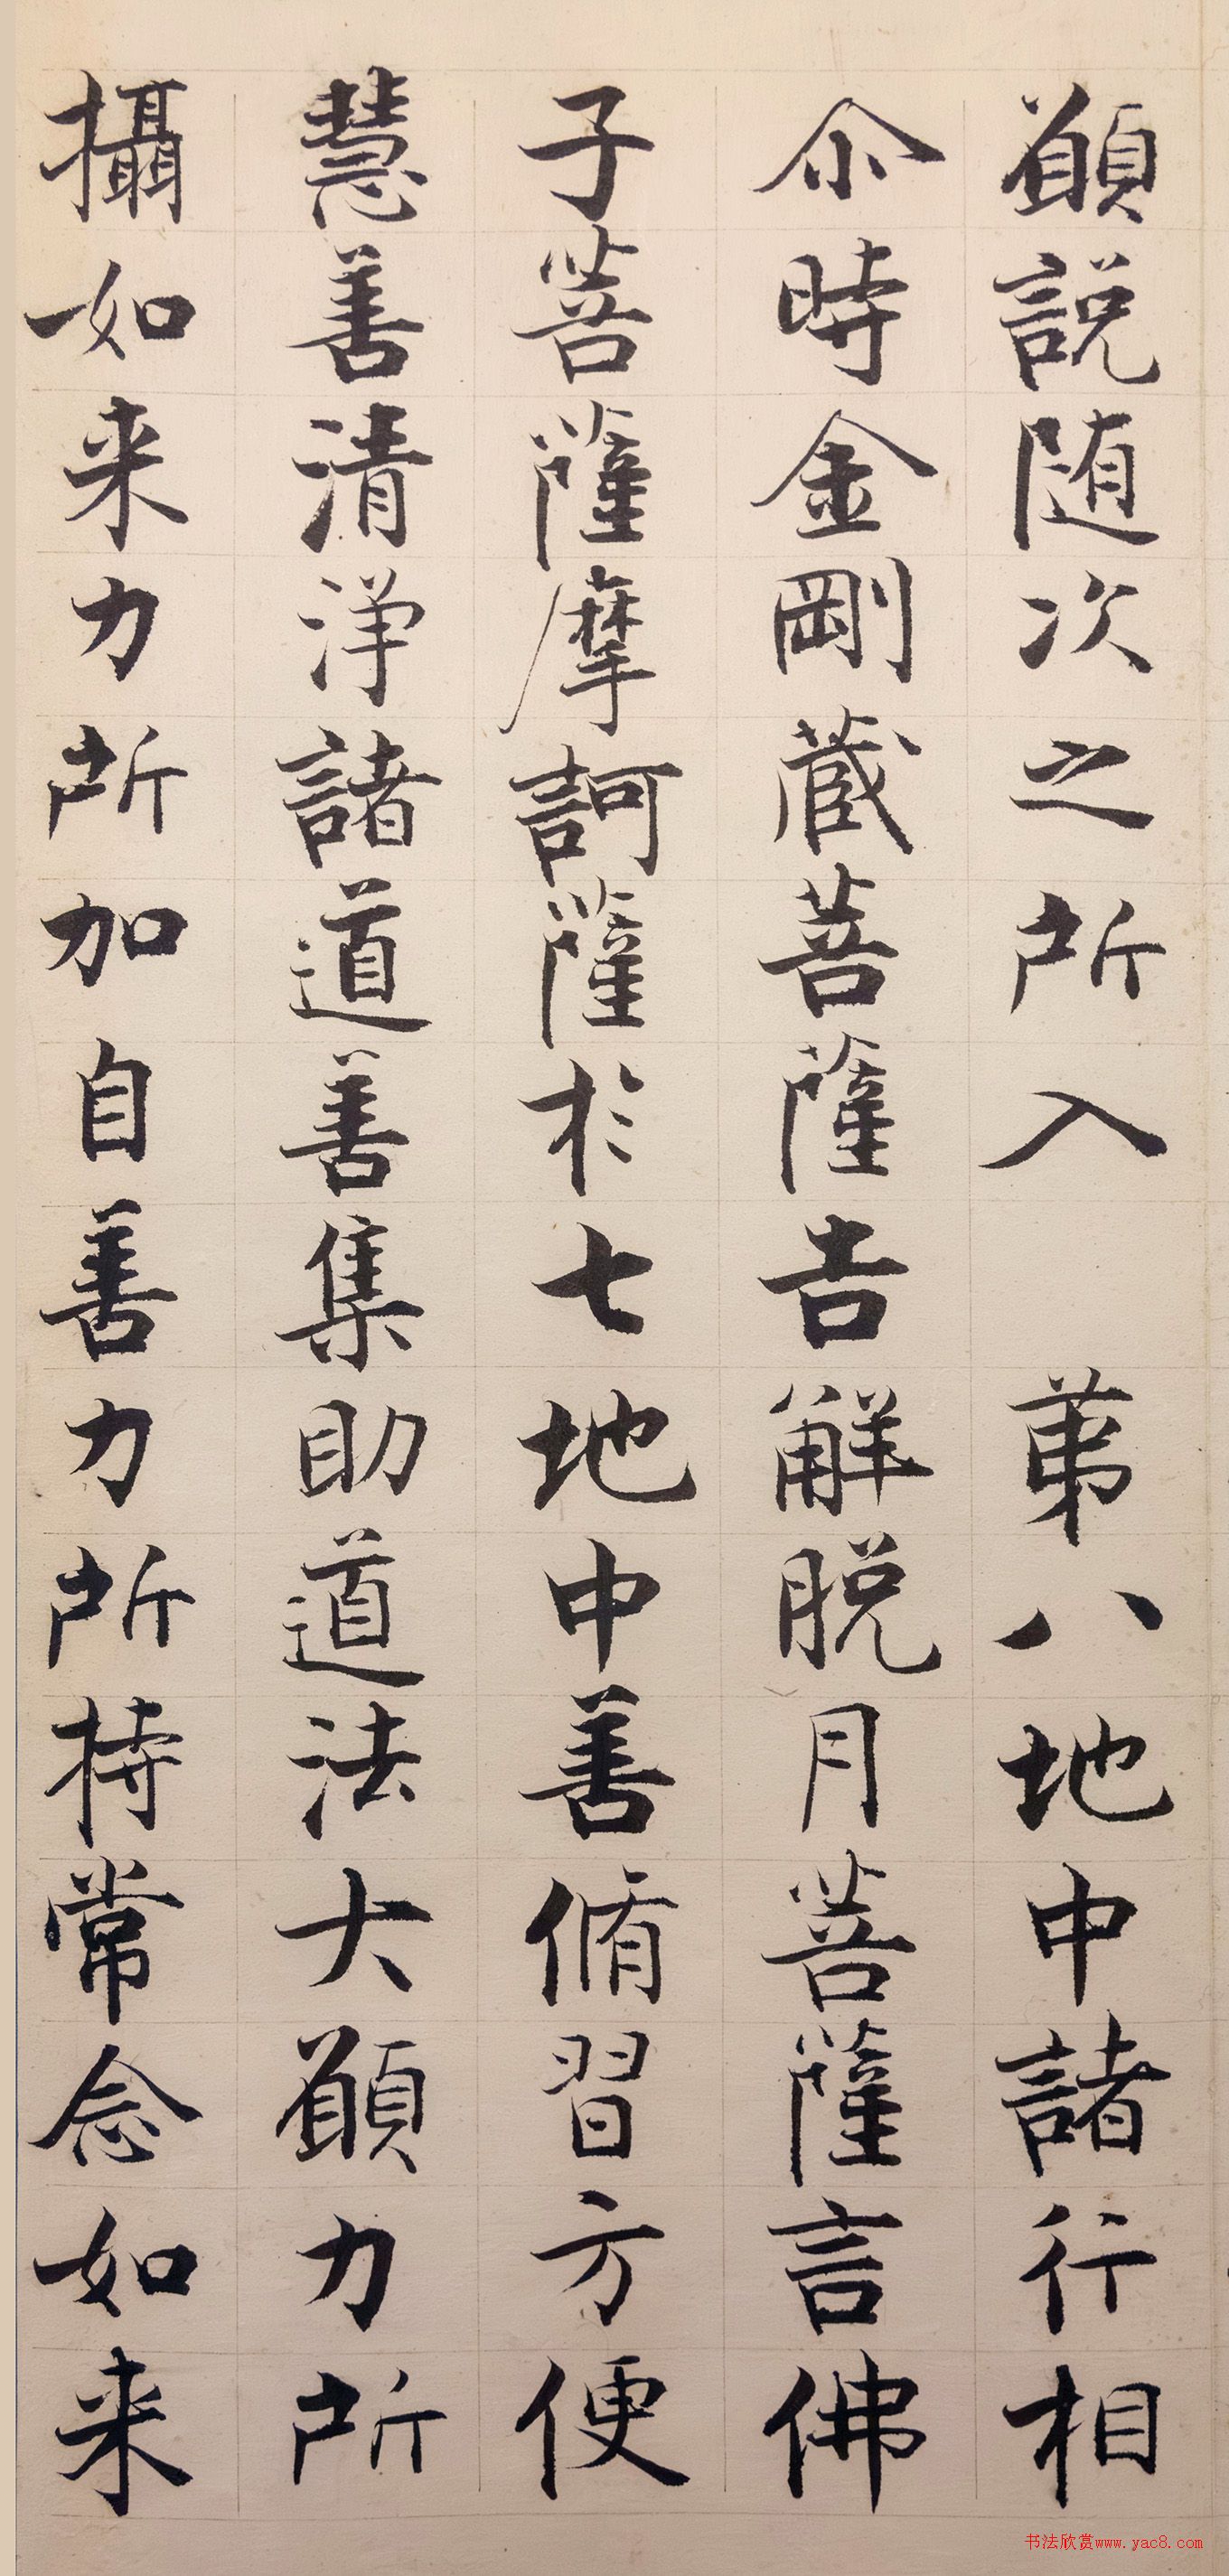 願說随次之所入　第八地中諸行相
尒時金剛蔵菩薩告解脱月菩薩言佛
子菩薩摩訶薩於七地中善脩習方便
慧善清淨諸道善集助道法大願力所
攝如来力所加自善力所持常念如来
书法欣赏www.yac8.com